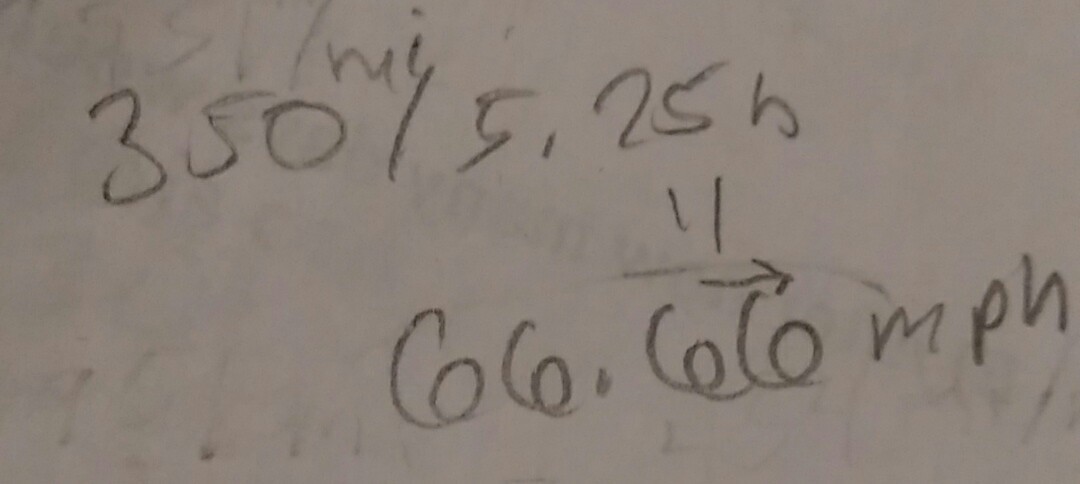 350 mi/5.25h
=
66.66 mph